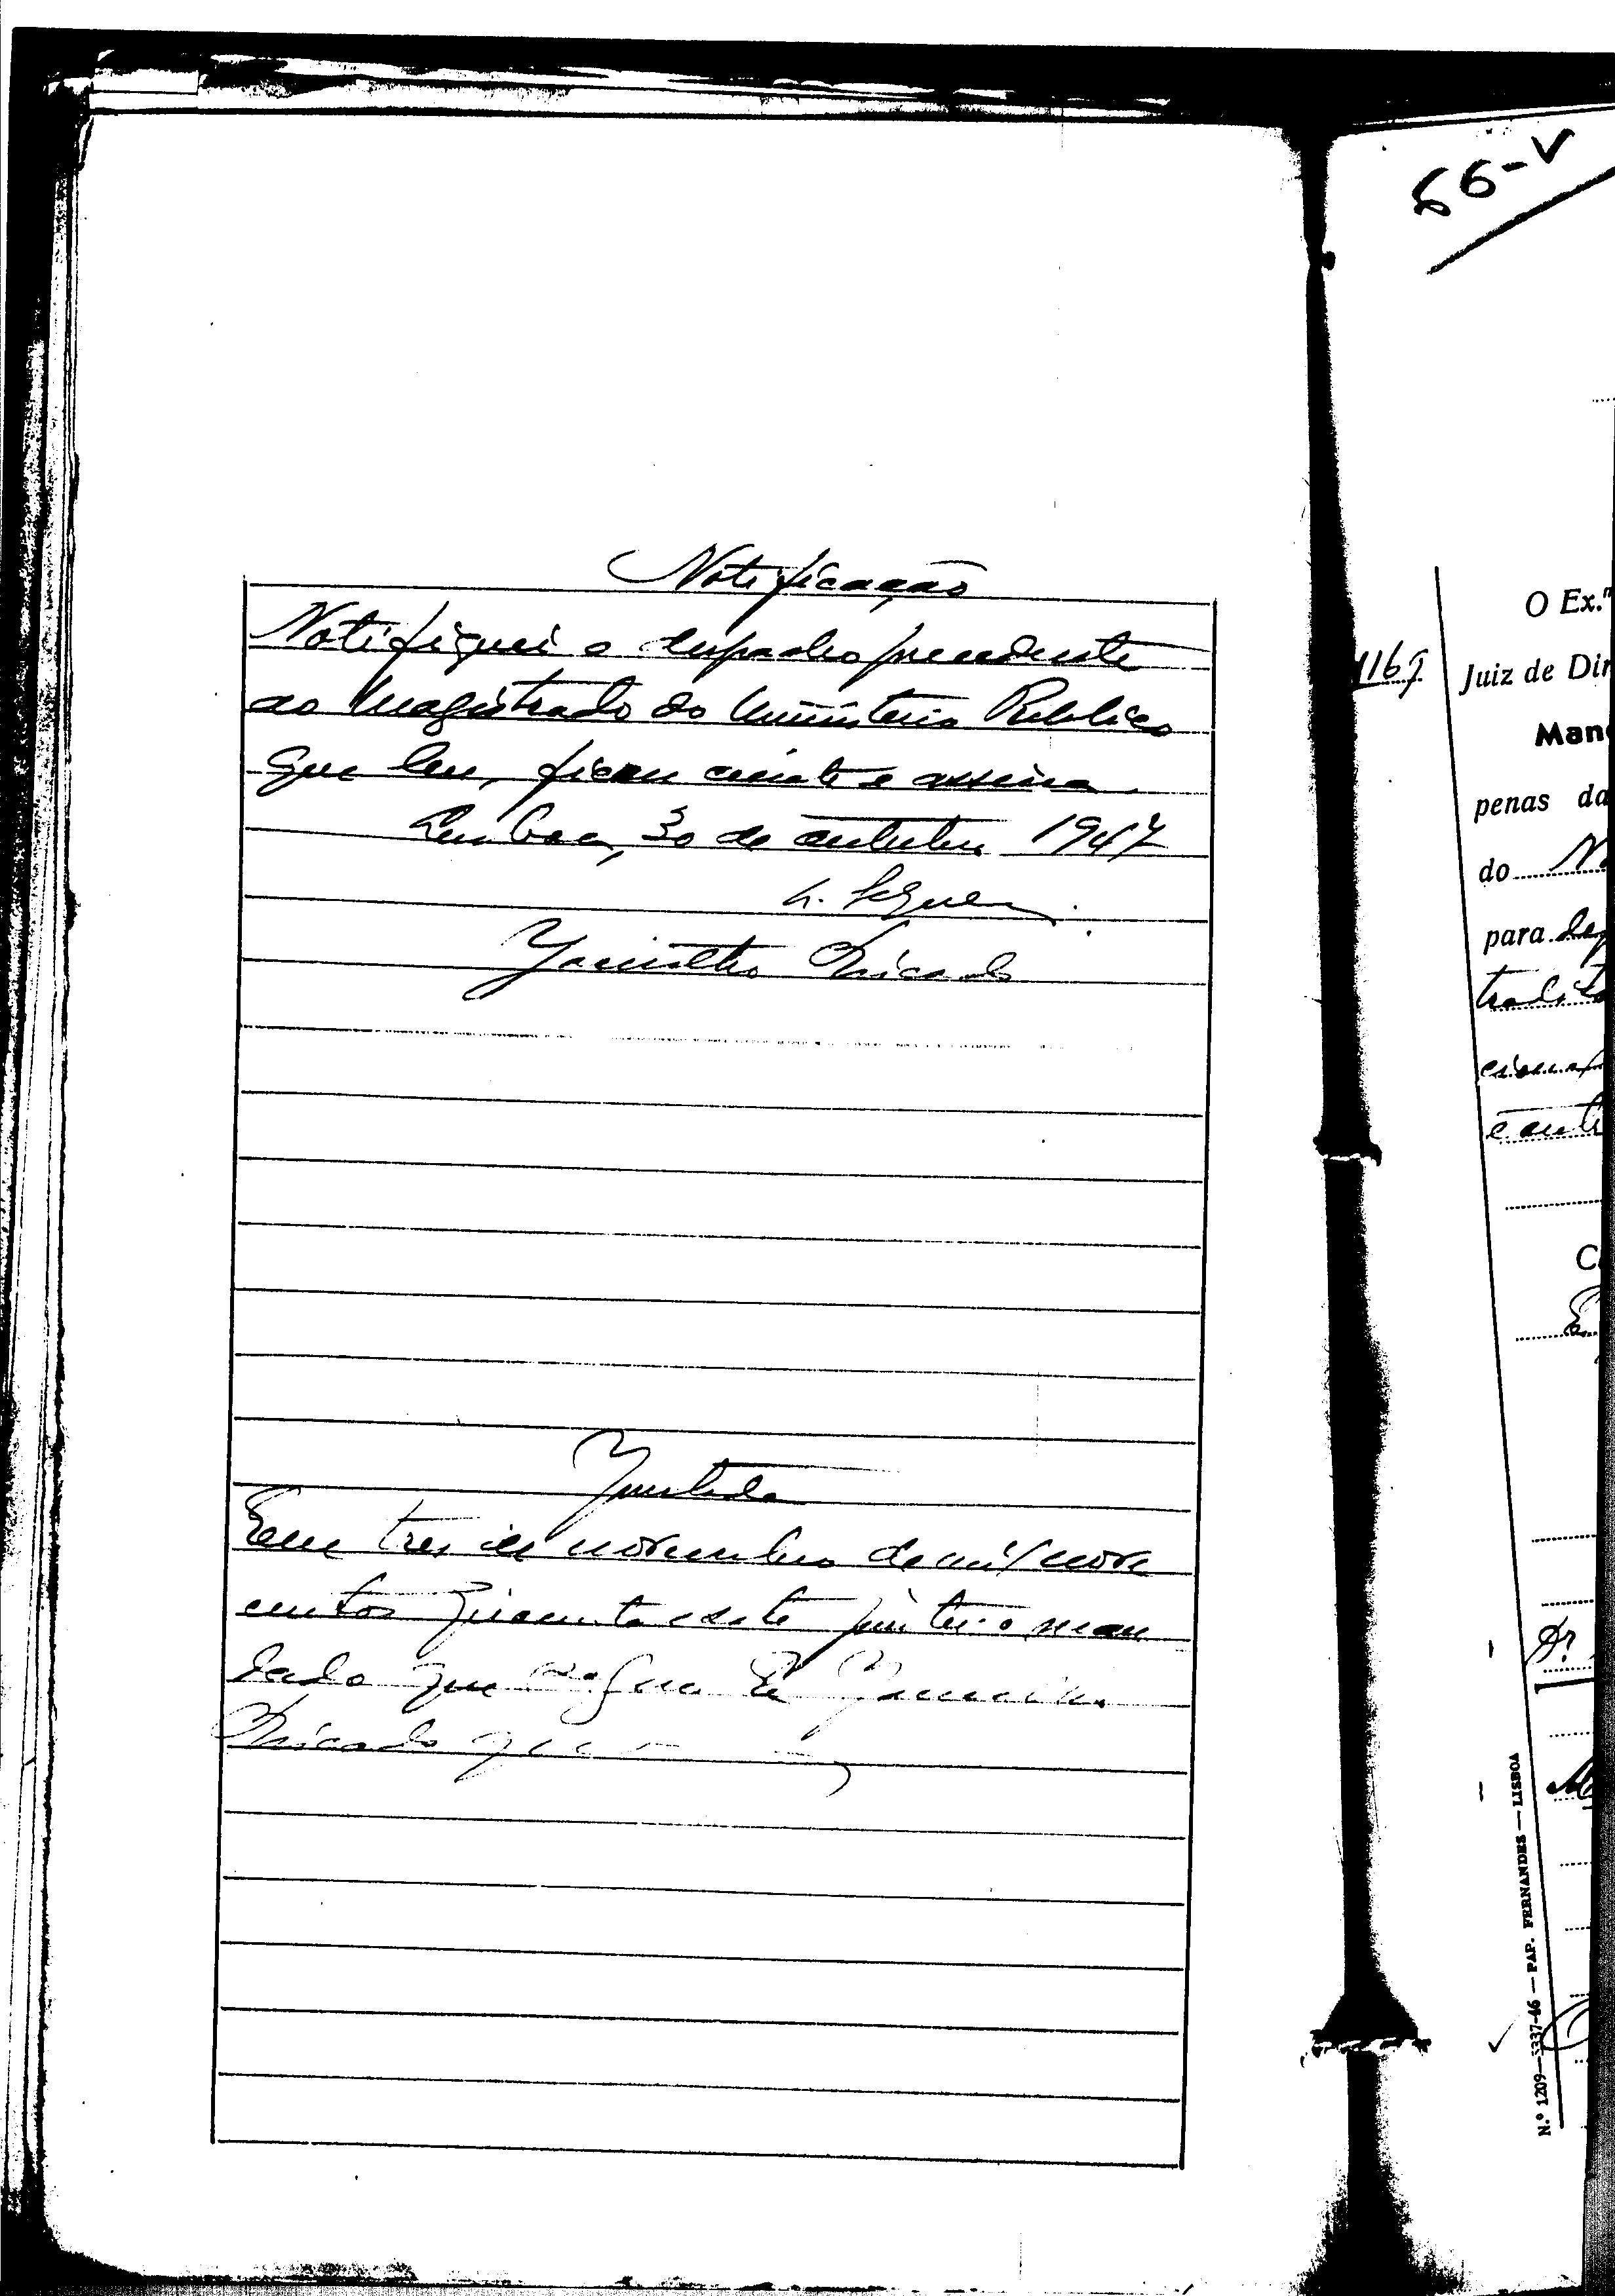 66-V
Notificação
Notifiquei o despacho precedente
ao Magistrado do Ministerio Publico
que leu, ficou ciente e assina.
Lisboa, 30 de outubro 1947
Jacintho Ricardo
Juntada
Em tres de novembro de mil nove
centos quarenta e sete juntei o man
dado que segue Eu Jacintho
Ricardo
O Ex.
1169
Juiz de Dir
Man
penas da
do
para
C
N.º 1209—5337-46 — PAP. FERNANDES — LISBOA